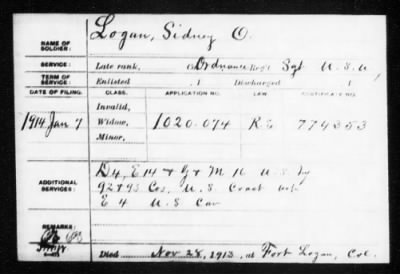 NAME OF SOLDIER: Logan, Sidney O.
SERVICE: Late rank, Co. Ordnance Reg't Sgt U.S.A.
TERM OF SERVICE: Enlisted , 1 Discharged , 1
DATE OF FILING. CLASS. APPLICATION NO. LAW. CERTIFICATE NO.
Invalid,
1914 Jan 7 Widow, 1.020.074 774353
Minor,
ADDITIONAL SERVICES: D4, E14 & G & M 16 U.S. Inf
92 & 93 Cos. U.S. Coast
E 4 U.S. Cav
REMARKS:
Died Nov 28, 1913, at Fort Logan, Col.